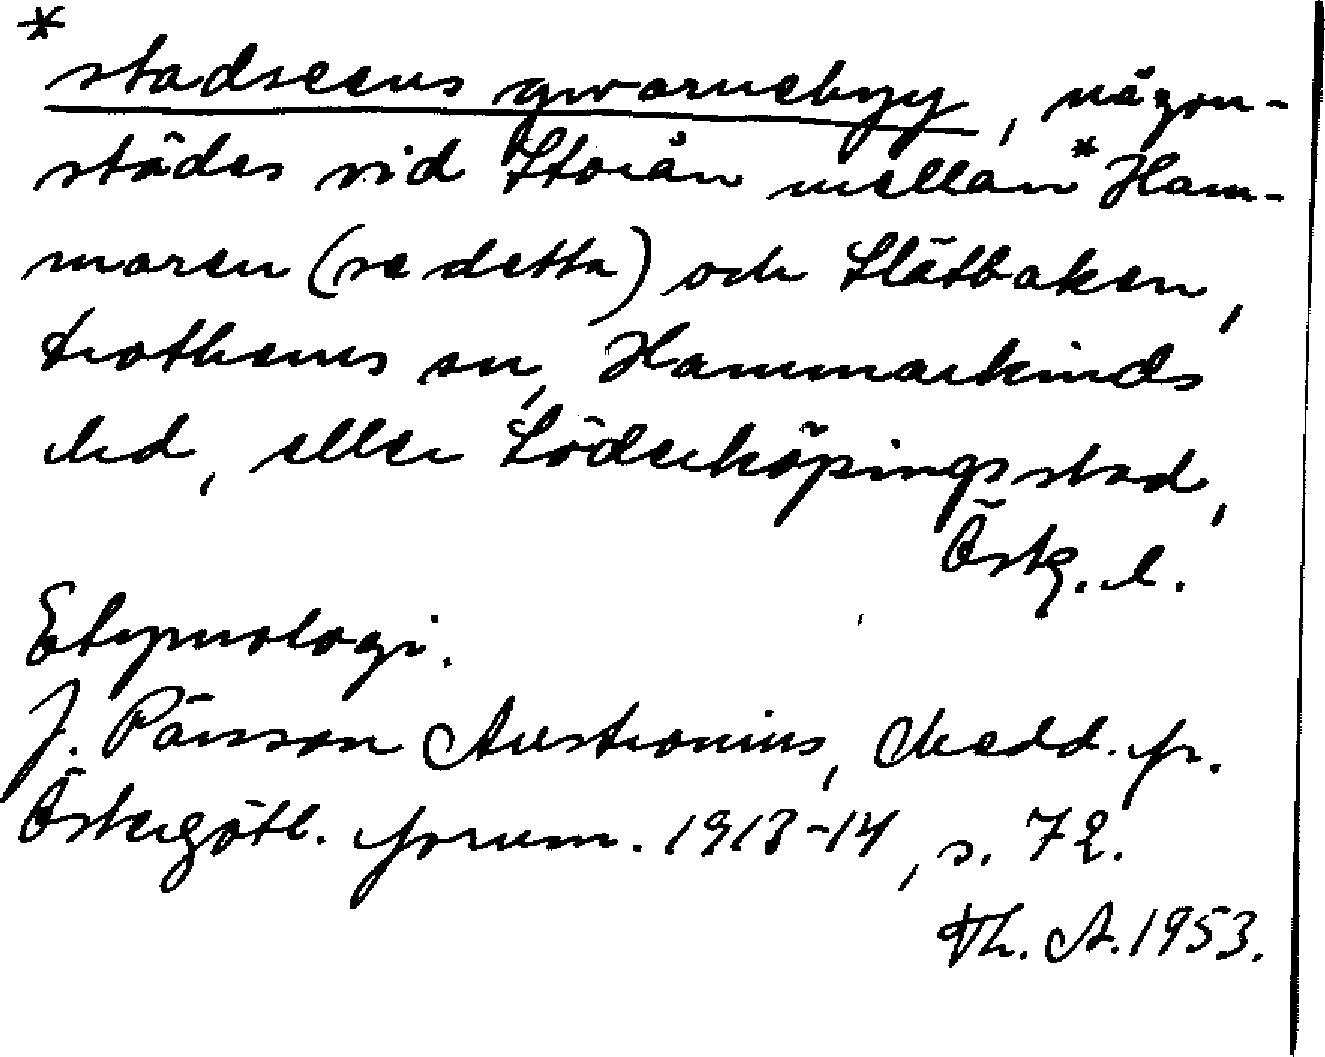 *
stadseens qwarnebyy, någon-
städes vid Storån mellan *Ham-
maren (se detta) och Slätbaken,
Drothems sn, Hammarkinds
hd, eller Söderköpings stad,
Östg. l.
Etymologi.
J. Pärsson Austronius, Medd. fr.
Östergötl. fornm. 1913-14, s. 72.
Th. A. 1953.